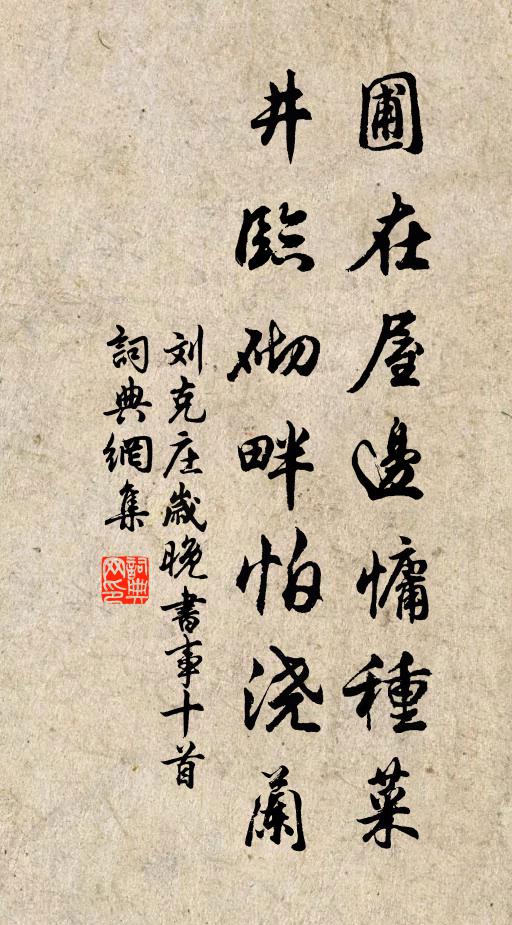 圃在屋邊慵種菜
井臨砌畔怕浇蘭
刘克庄歲晚書事十首
詞典網集
詞典網印